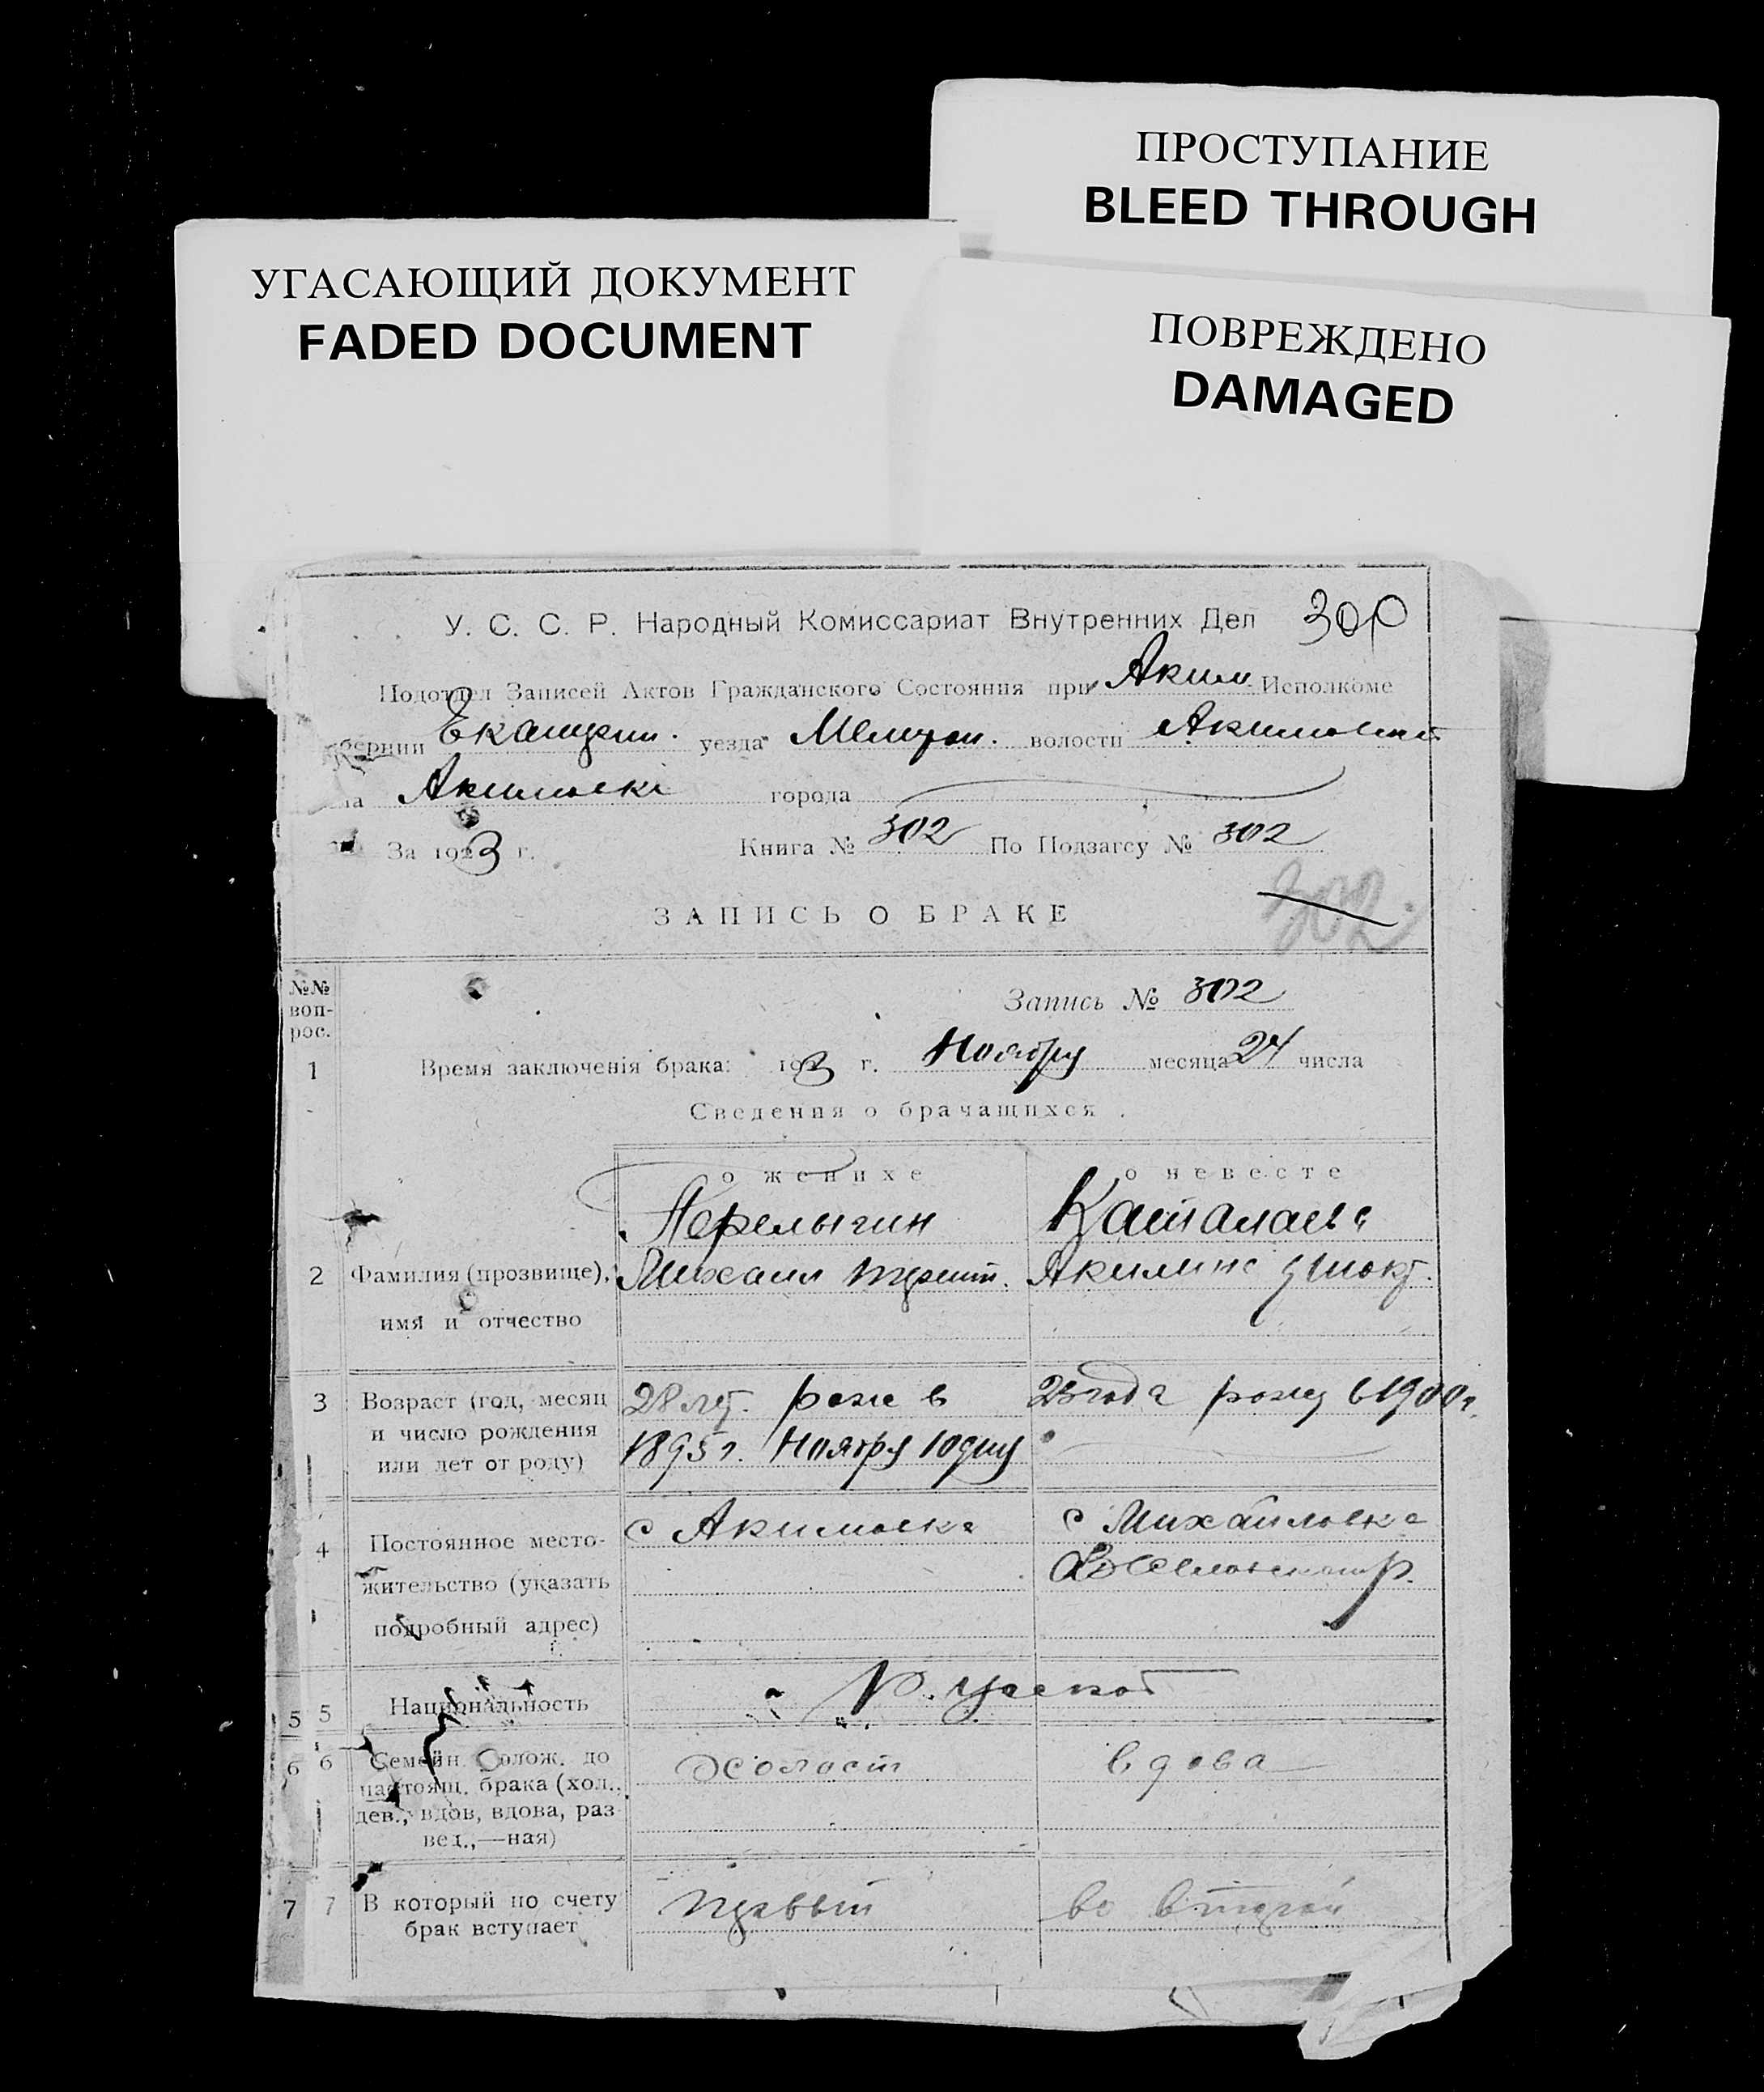 ПРОСТУПАНИЕ
BLEED THROUGH
УГАСАЮЩИЙ ДОКУМЕНТ
FADED DOCUMENT
ПОВРЕЖДЕНО
DAMAGED
У. С. С. Р. Народный Комиссариат Внутренних Дел
Подотдел Записей Актов Гражданского Состояния при Аким. Исполкоме
бернии Екатерин. уезда Мелитоп. волости Акимовской
ла Акимовки города
За 1923 г. Книга № 302 По Подзагсу № 302
302
ЗАПИСЬ О БРАКЕ
№№ воп-рос.
Запись № 302
1 Время заключенія брака: 1923 г. Ноября месяца 24 числа
Сведения о брачащихся
о женихе о невесте
Перелыгин
2 Фамилия (прозвище), Михаил Акилина
имя и отчество
3 Возраст (год, месяц 28 лет. рож в 23 года рожд в 1900 г.
и число рождения 1895 г. Ноября 10 дня
или лет от роду)
4 Постоянное место- с Акимовка с Михайловка
жительство (указать
подробный адрес)
5 5 Национальность Русской
6 6 Семейн. Полож. до холост вдова
настоящ. брака (хол.,
дев., вдов, вдова, раз
вед.,—ная)
7 7 В который по счету первый во второй
брак вступает